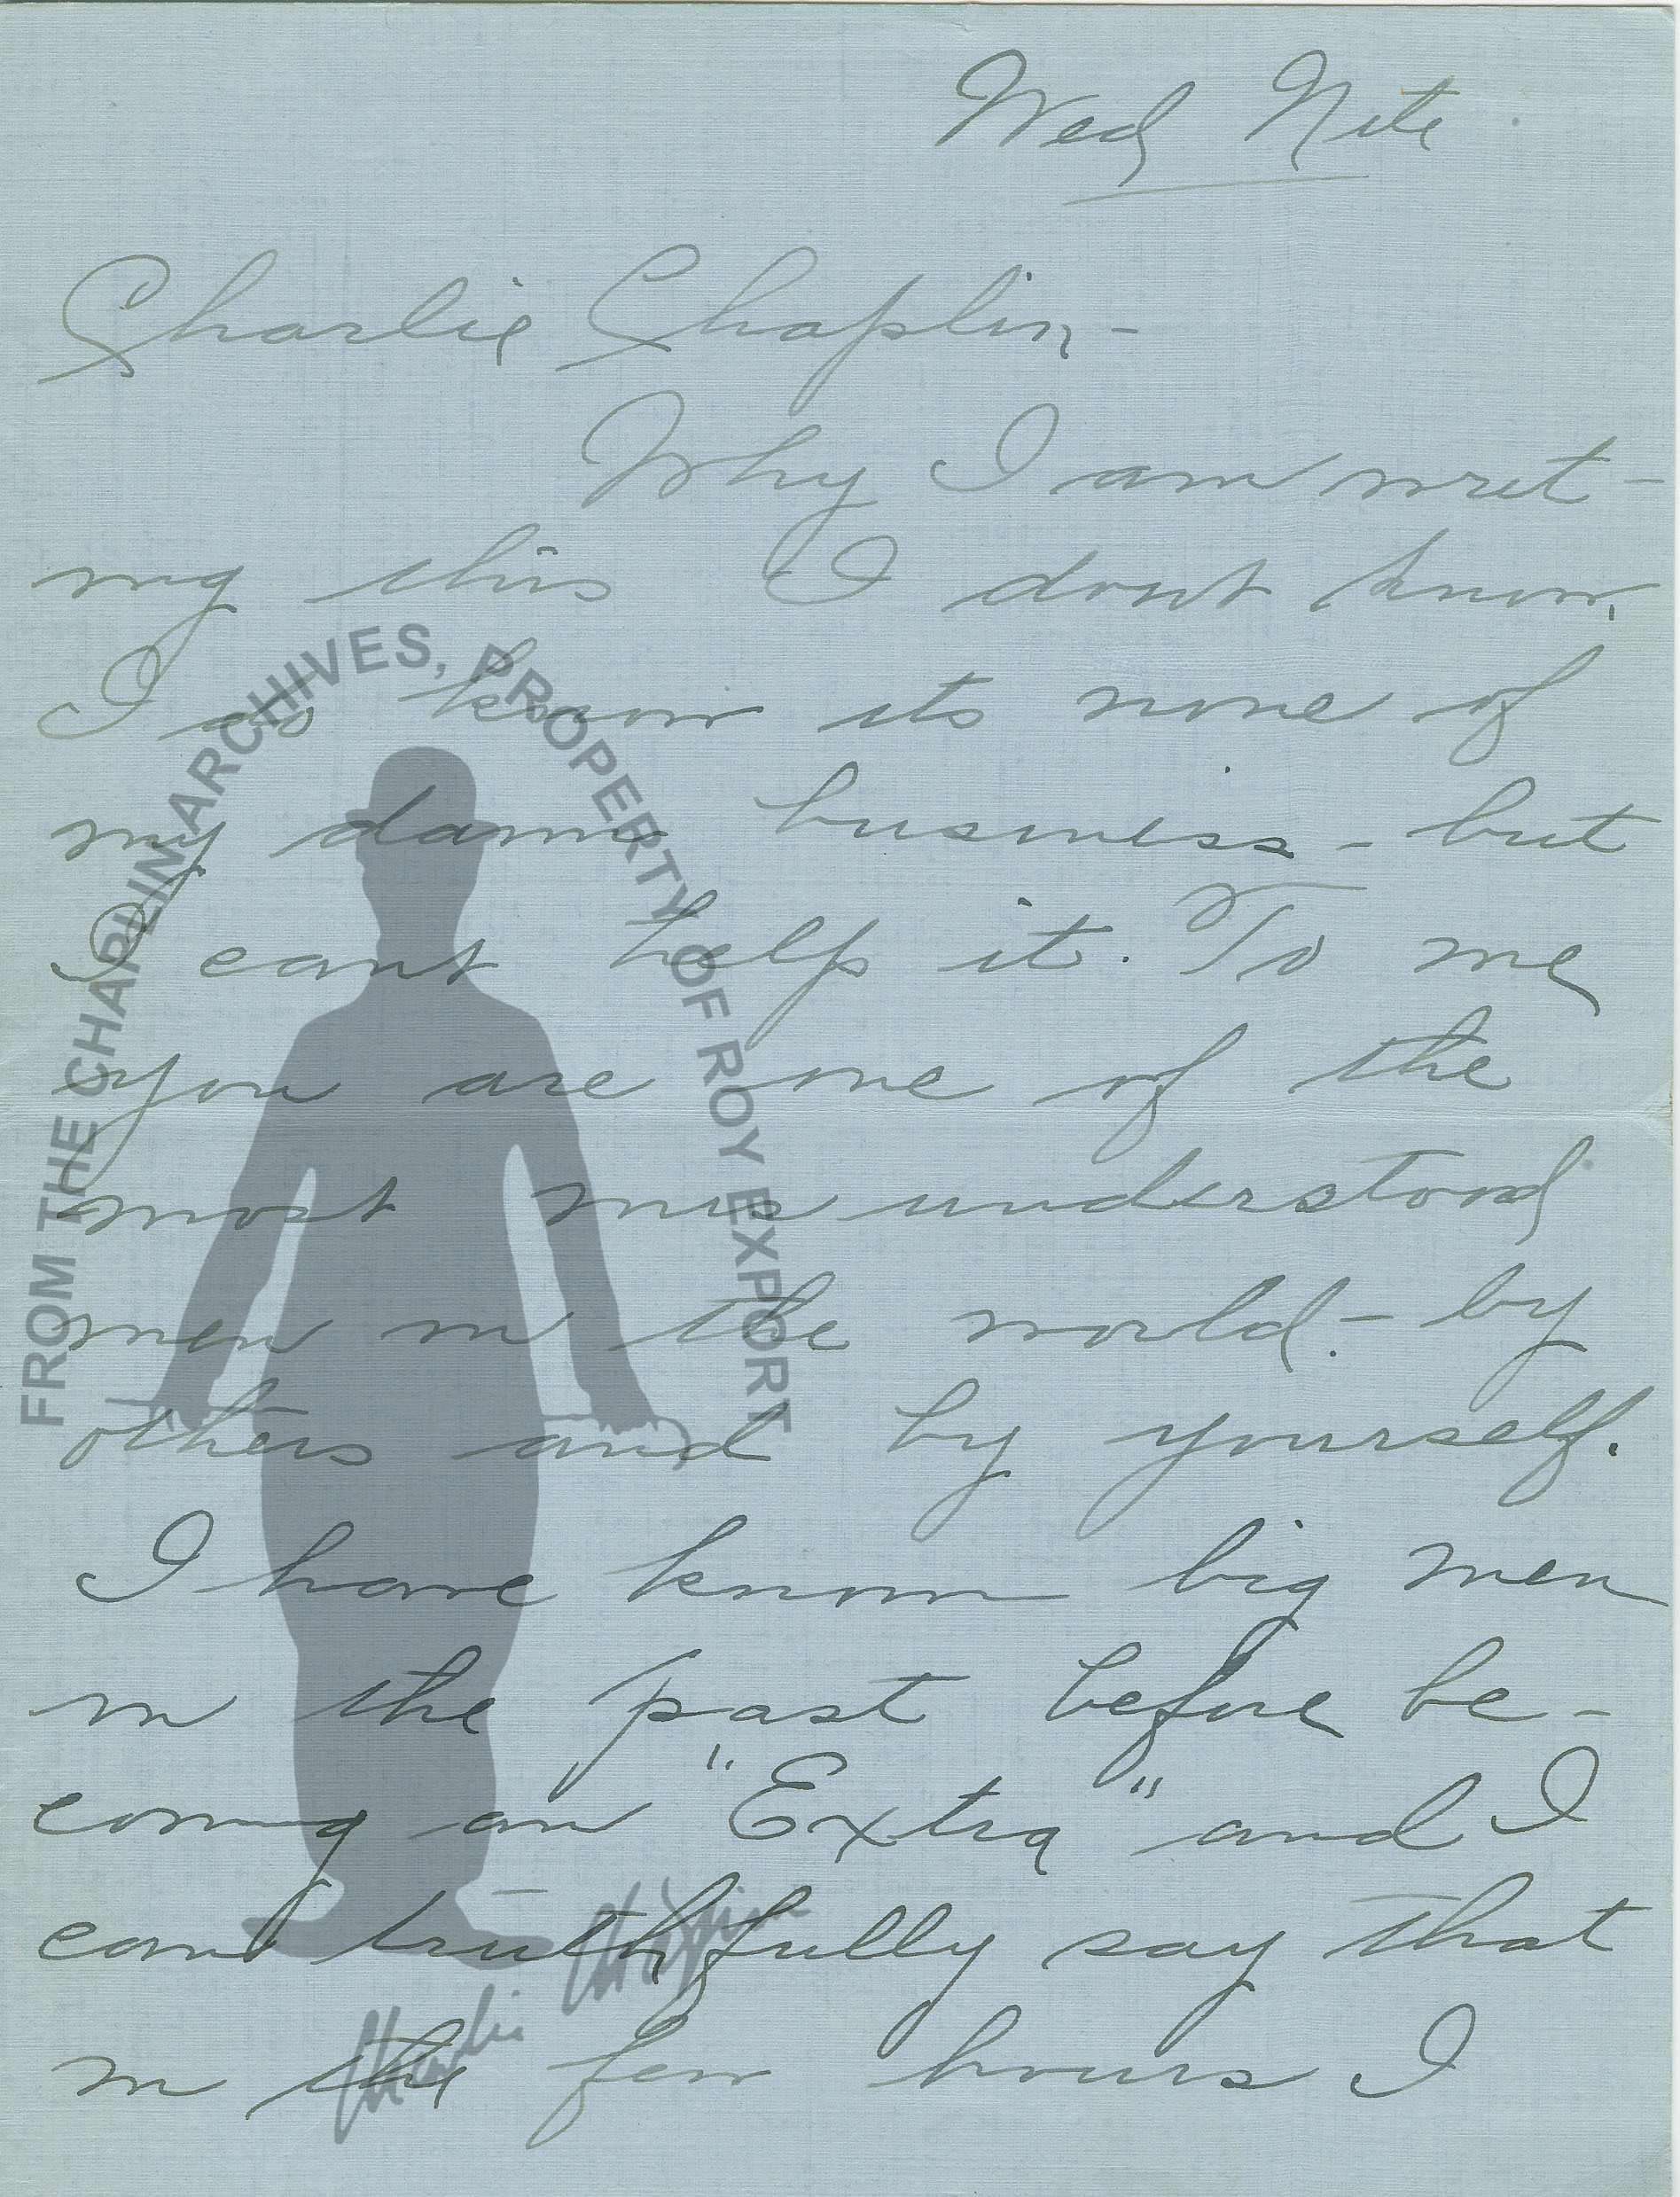 Wed Nite
Charlie Chaplin-
Why I am writ-
ing this I dont know.
I do know its none of
my damn business - but
I cant help it. To me
you are one of the
most mis understood
men in the world. - by
others and by yourself.
I have known big men
in the past before be-
coming an "Extra" and I
can truthfully say that
in the few hours I
FROM THE CHAPLIN ARCHIVES, PROPERTY OF ROY EXPORT
Charlie Chaplin